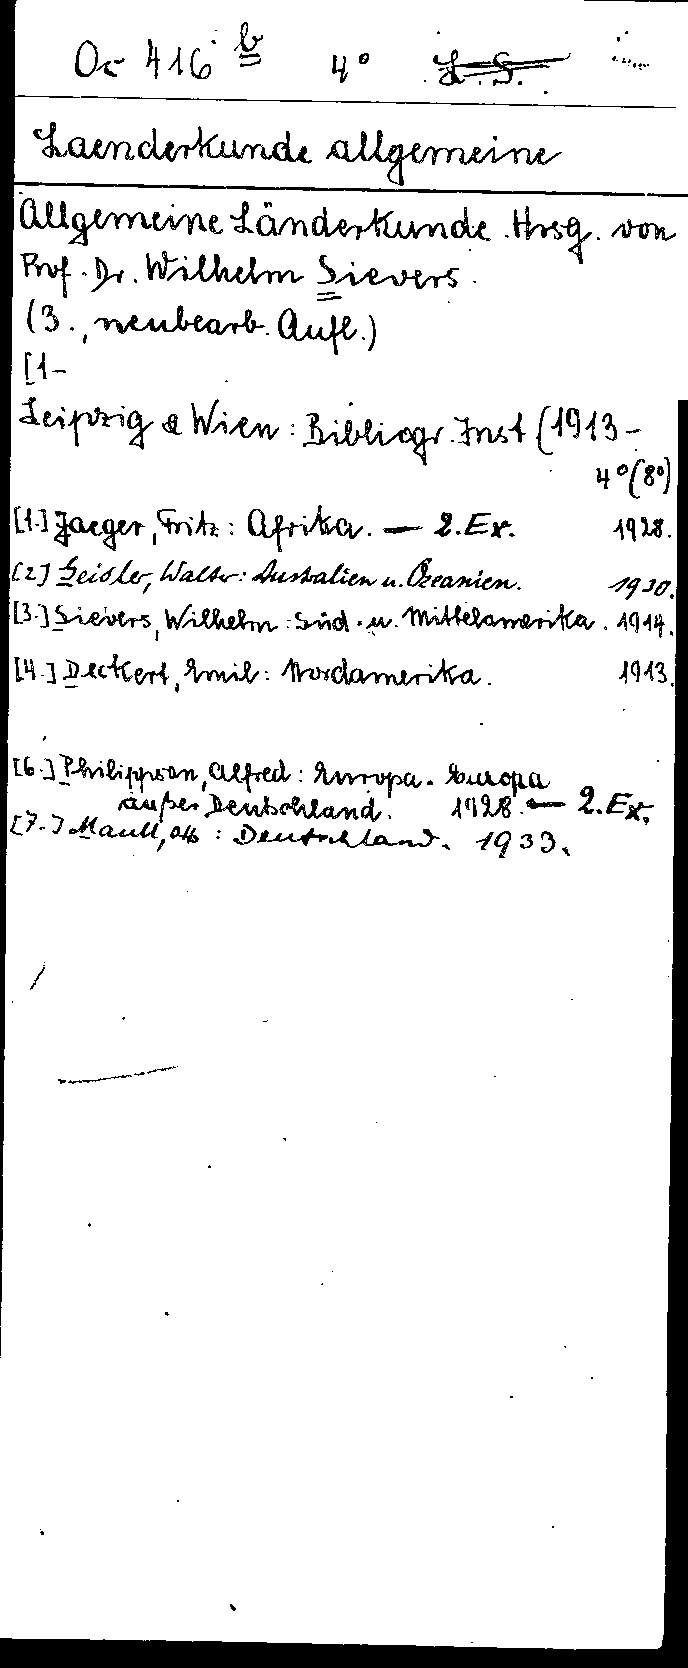 Oc 416 b 4° L. S.
Laenderkunde allgemeine
Allgemeine Länderkunde. Hrsg. von
Prof. Dr. Wilhelm Sievers.
(3., neubearb. Aufl.)
[1-
Leipzig & Wien: Bibliogr. Inst (1913-
4°(8°)
[1.] Jaeger, Fritz: Afrika. — 2. Ex. 1928.
[2] Geisler, Walter: Australien u. Ozeanien. 1930.
[3.] Sievers, Wilhelm: Süd- u. Mittelamerika. 1914.
[4.] Deckert, Emil: Nordamerika. 1913.
[6.] Philippson, Alfred: Europa. Europa
außer Deutschland. 1928. — 2. Ex.
[7.] Maull, Otto: Deutschland. 1933.